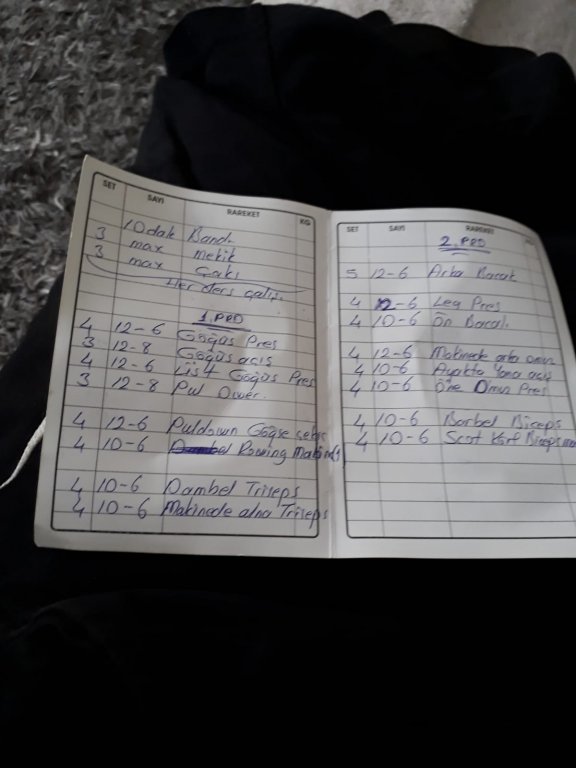 SET SAYI RAREKET KG
10dak Band
3 max mekik
3 max Çakı
Her ders çalış.
1.PRO
4 12-6 Göğüs Pres
3 12-8 Göğüs açış
4 12-6 Üst Göğüs Pres
3 12-8 Pul Ower
4 12-6 Puldown Göğse çekiş
4 10-6 Rowing Makine
4 10-6 Dambel Triseps
4 10-6 Makinede alna Triseps
SET SAYI RAREKET
2.PRO
5 12-6 Arka Bacak
4 12-6 Leg Pres
4 10-6 Ön Bacak
4 12-6 Makinede arka omuz
4 10-6 Ayakta Yana açış
4 10-6 Öne Omuz Pres
4 10-6 Barbel Biceps
4 10-6 Scot Körl Biceps